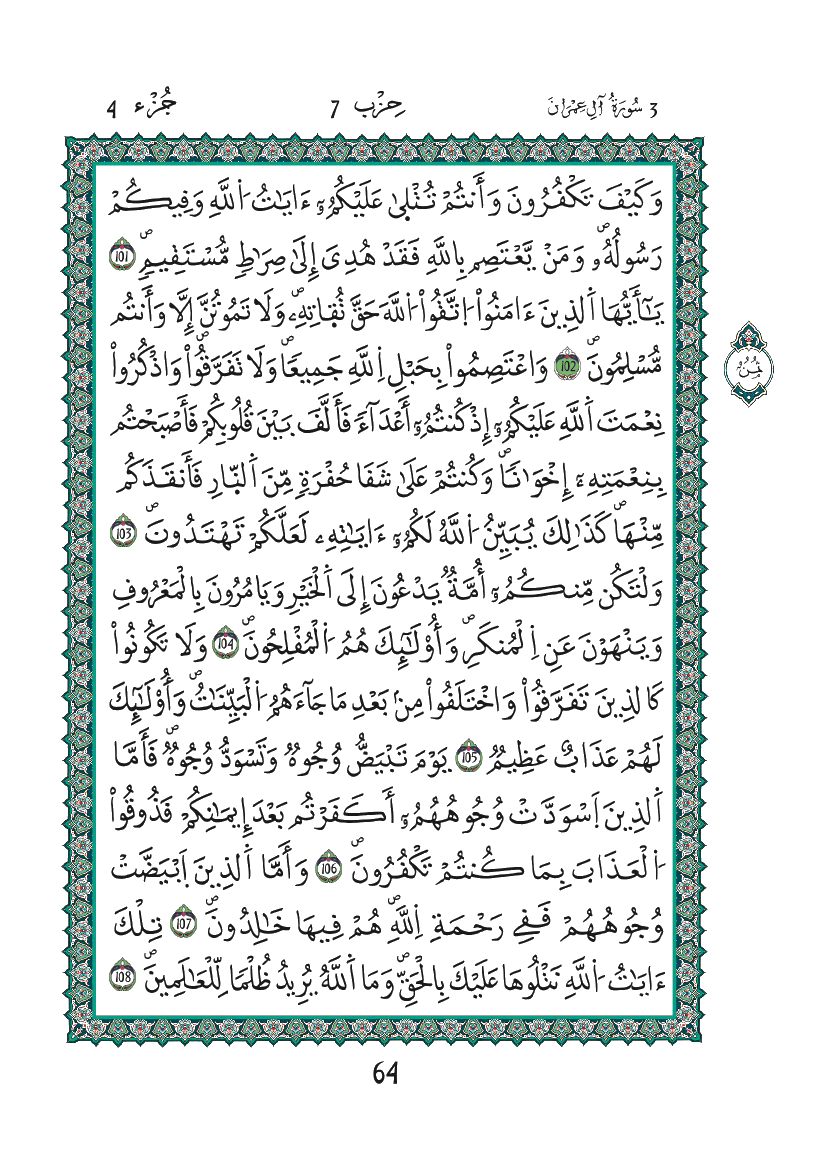 3 سُورَةُ آلِ عِمْرَانَ حِزْب 7 جُزْء 4
وَكَيْفَ تَكْفُرُونَ وَأَنتُمْ تُتْلَىٰ عَلَيْكُمُۥٓ ءَايَٰتُ اُ۬للَّهِ وَفِيكُمْ
رَسُولُهُۥۖ وَمَنْ يَّعْتَصِم بِاللَّهِ فَقَدْ هُدِىَ إِلَىٰ صِرَٰطٖ مُّسْتَقِيمٖۖ 101
يَٰٓأَيُّهَا اَ۬لذِينَ ءَامَنُواْ اُ۪تَّقُواْ اُ۬للَّهَ حَقَّ تُقَاتِهِۦۖ وَلَا تَمُوتُنَّ إِلَّا وَأَنتُم
مُّسْلِمُونَۖ 102 وَاعْتَصِمُواْ بِحَبْلِ اِ۬للَّهِ جَمِيعاٗۖ وَلَا تَفَرَّقُواْۖ وَاذْكُرُواْ
نِعْمَتَ اَ۬للَّهِ عَلَيْكُمُۥٓ إِذْ كُنتُمُۥٓ أَعْدَآءٗ فَأَلَّفَ بَيْنَ قُلُوبِكُمْ فَأَصْبَحْتُم
بِنِعْمَتِهِۦٓ إِخْوَٰناٗۖ وَكُنتُمْ عَلَىٰ شَفَا حُفْرَةٖ مِّنَ اَ۬لنّ۪ارِ فَأَنقَذَكُم
مِّنْهَاۖ كَذَٰلِكَ يُبَيِّنُ اُ۬للَّهُ لَكُمُۥٓ ءَايَٰتِهِۦ لَعَلَّكُمْ تَهْتَدُونَۖ 103
وَلْتَكُن مِّنكُمُۥٓ أُمَّةٞ يَدْعُونَ إِلَى اَ۬لْخَيْرِ وَيَامُرُونَ بِالْمَعْرُوفِ
وَيَنْهَوْنَ عَنِ اِ۬لْمُنكَرِۖ وَأُوْلَٰٓئِكَ هُمُ اُ۬لْمُفْلِحُونَۖ 104 وَلَا تَكُونُواْ
كَالذِينَ تَفَرَّقُواْ وَاخْتَلَفُواْ مِنۢ بَعْدِ مَا جَآءَهُمُ اُ۬لْبَيِّنَٰتُۖ وَأُوْلَٰٓئِكَ
لَهُمْ عَذَابٌ عَظِيمٞ 105 يَوْمَ تَبْيَضُّ وُجُوهٞ وَتَسْوَدُّ وُجُوهٞۖ فَأَمَّا
اَ۬لذِينَ اَ۪سْوَدَّتْ وُجُوهُهُمُۥٓ أَكَفَرْتُم بَعْدَ إِيمَٰنِكُمْ فَذُوقُواْ
اُ۬لْعَذَابَ بِمَا كُنتُمْ تَكْفُرُونَۖ 106 وَأَمَّا اَ۬لذِينَ اَ۪بْيَضَّتْ
وُجُوهُهُمْ فَفِى رَحْمَةِ اِ۬للَّهِۖ هُمْ فِيهَا خَٰلِدُونَۖ 107 تِلْكَ
ءَايَٰتُ اُ۬للَّهِ نَتْلُوهَا عَلَيْكَ بِالْحَقِّۖ وَمَا اَ۬للَّهُ يُرِيدُ ظُلْماٗ لِّلْعَٰلَمِينَۖ 108
ثُمُنُ
64